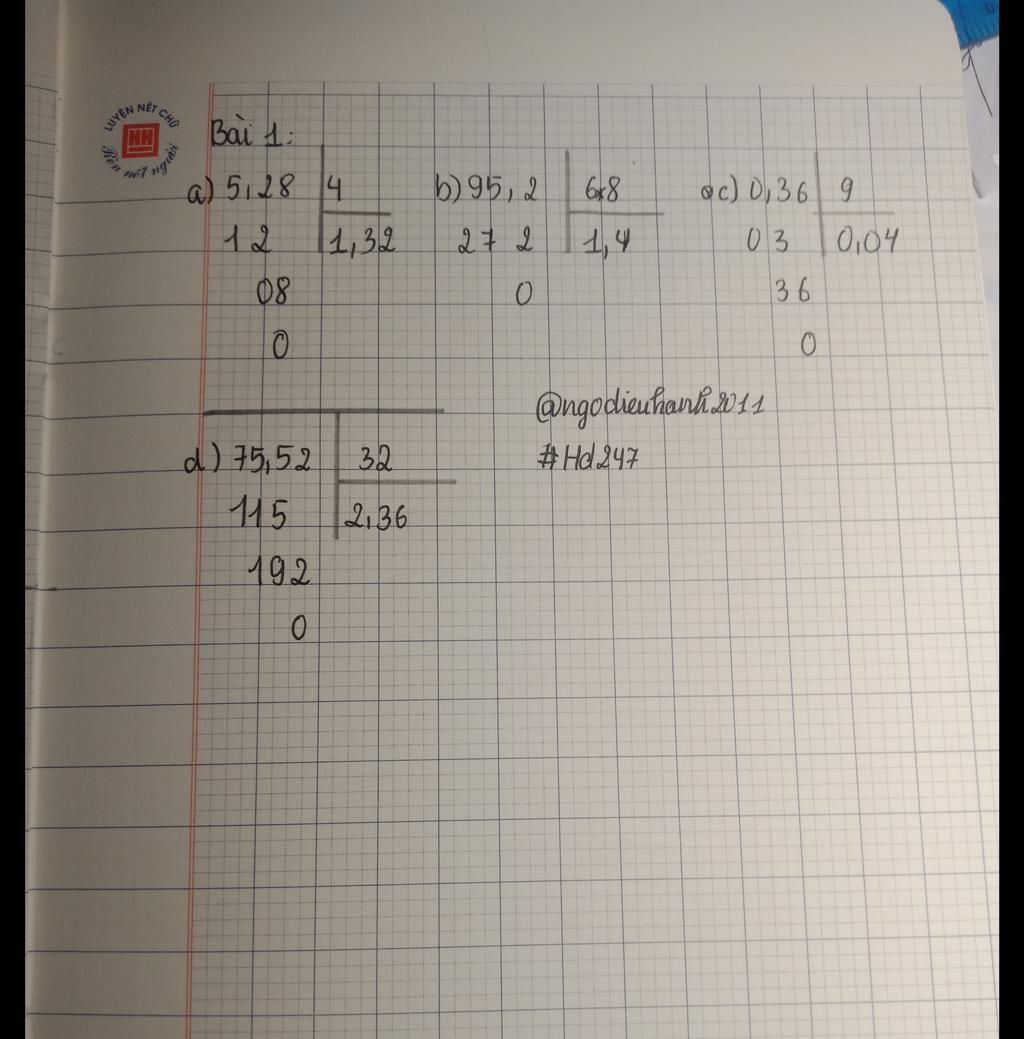 LUYỆN NÉT CHỮ
HH
Rèn nét người
Bài 1:
a) 5,28 4 b) 95,2 68 c) 0,36 9
12 1,32 27 2 1,4 03 0,04
08 0 36
0 0
@ngodieuhanh2011
d) 75,52 32 #Hd247
115 2,36
192
0